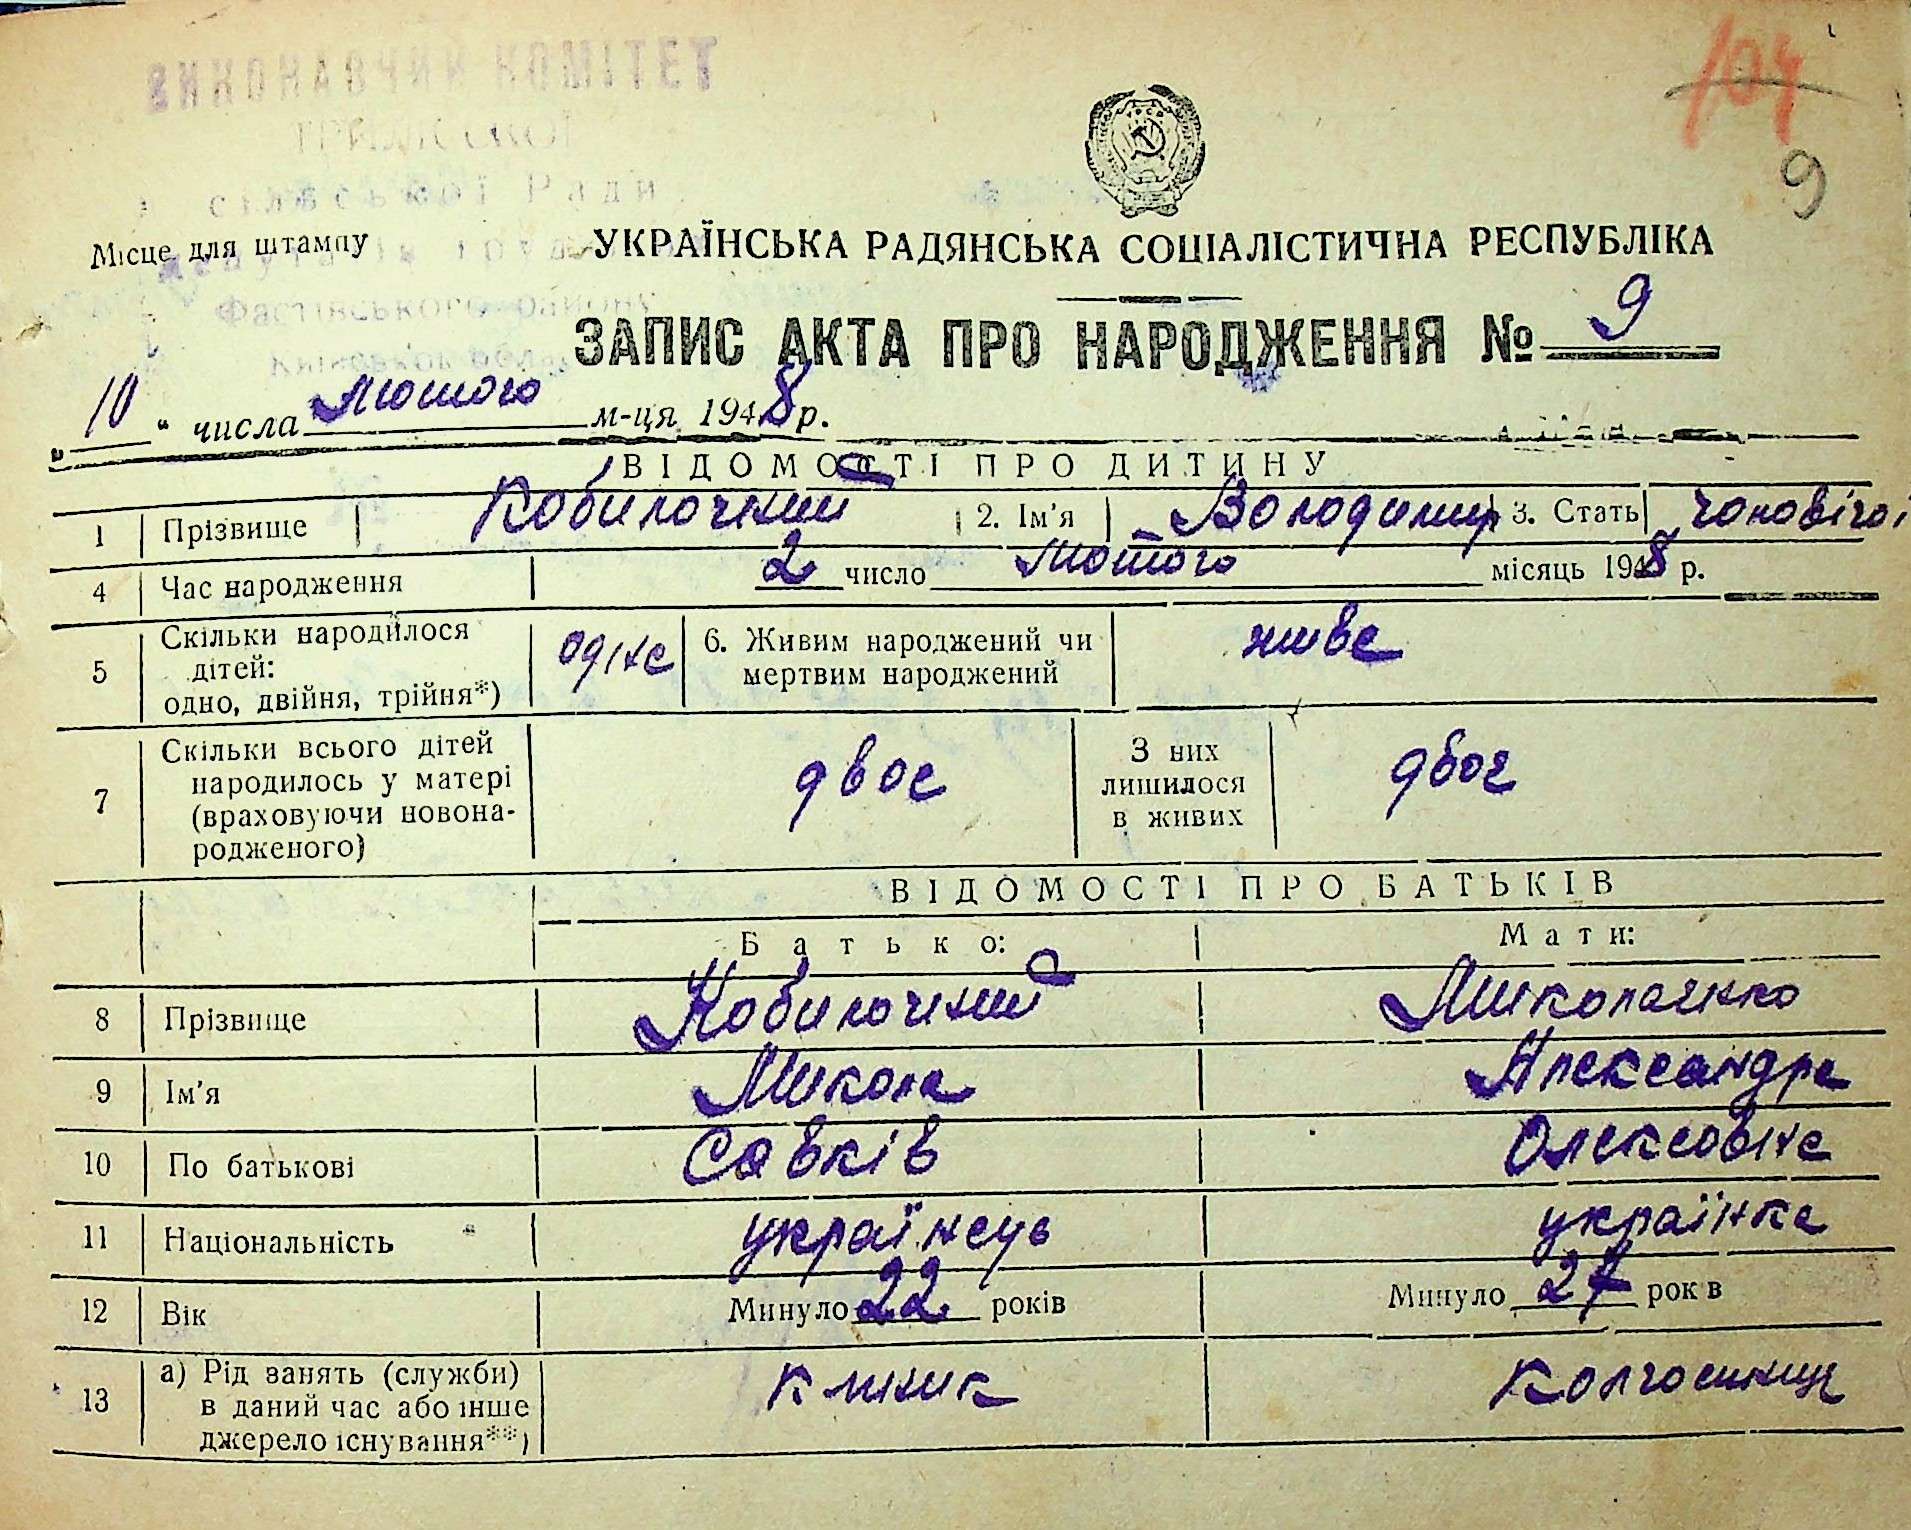 104
9
ВИКОНАВЧИЙ КОМІТЕТ
сільської Ради
Місце для штампу
Фастівського району
УКРАЇНСЬКА РАДЯНСЬКА СОЦІАЛІСТИЧНА РЕСПУБЛІКА
ЗАПИС АКТА ПРО НАРОДЖЕННЯ № 9
„10“ числа Лютого м-ця 1948 р.
ВІДОМОСТІ ПРО ДИТИНУ
1 Прізвище Кобилочний 2. Ім'я Володимир 3. Стать чоловічої
4 Час народження 2 число Лютого місяць 1948 р.
5 Скільки народилося дітей: одно, двійня, трійня*) одне 6. Живим народжений чи мертвим народжений живе
7 Скільки всього дітей народилось у матері (враховуючи новонародженого) двоє З них лишилося в живих двоє
ВІДОМОСТІ ПРО БАТЬКІВ
Батько: Мати:
8 Прізвище Кобилочний Миколаєнко
9 Ім'я Микола Александра
10 По батькові Савків Олексовна
11 Національність українець українка
12 Вік Минуло 22 років Минуло 27 років
13 а) Рід занять (служби) в даний час або інше джерело існування**) Колгоспниця